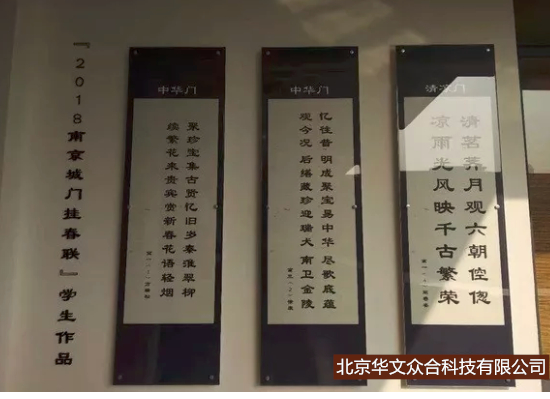 『2018南京城门挂春联』学生作品
中华门
聚珍宝集古贤忆旧岁秦淮翠柳
续繁花来贵宾赏新春花语轻烟
中华门
忆往昔 明成聚宝易中华 尽歌底蕴
观今况 后缮藏珍迎瑞犬 南卫金陵
清凉门
清茗荠月观六朝倥偬
凉雨光风映千古繁荣
北京华文众合科技有限公司